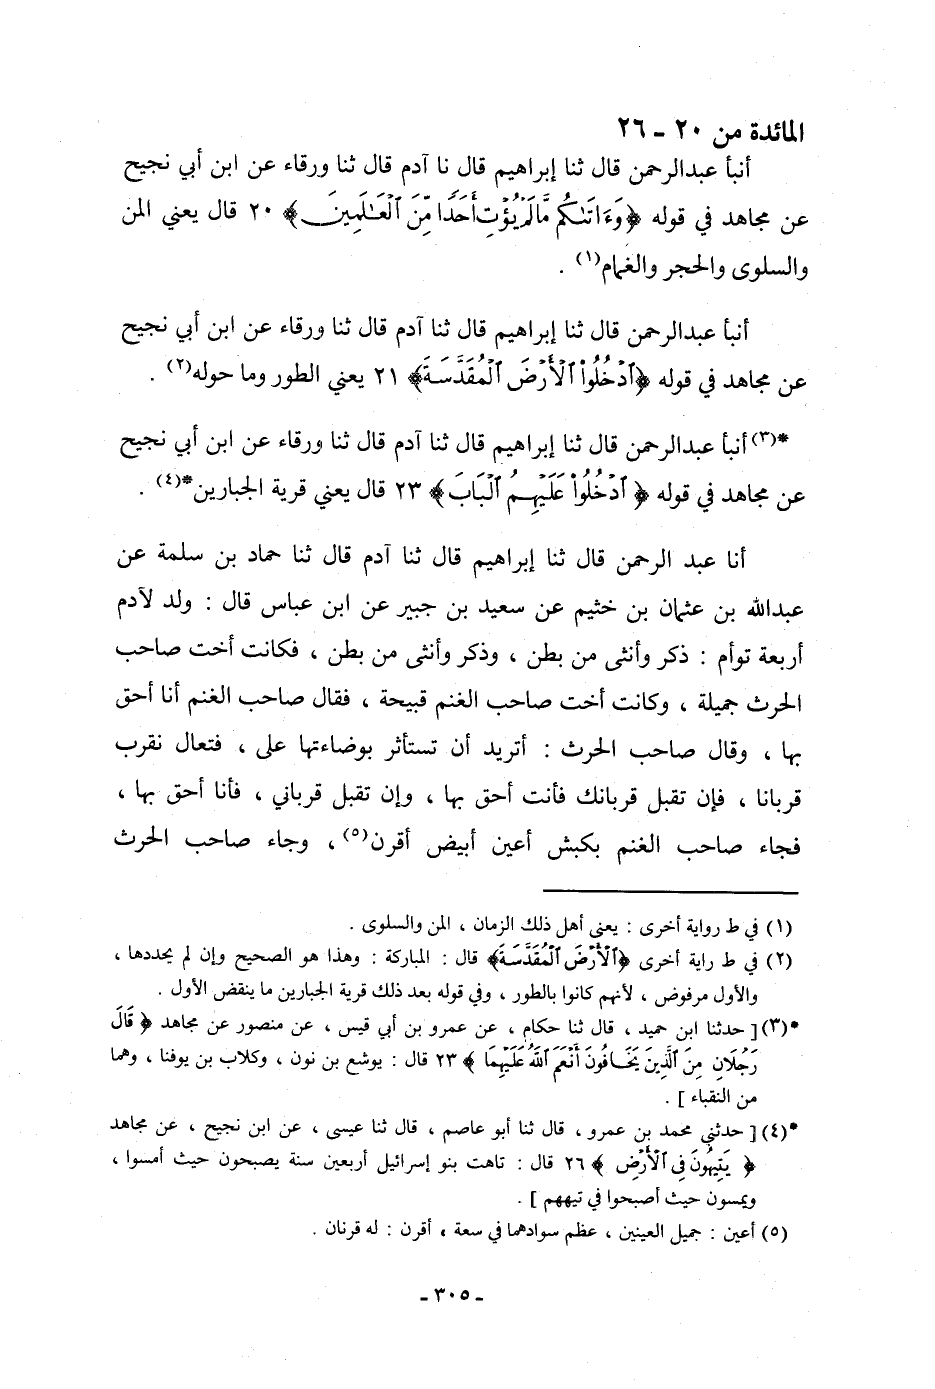 المائدة من ٢٠ - ٢٦
أنبأ عبدالرحمن قال ثنا إبراهيم قال نا آدم قال ثنا ورقاء عن ابن أبي نجيح
عن مجاهد في قوله ﴿وَءَاتَىٰكُم مَّا لَمْ يُؤْتِ أَحَدًا مِّنَ ٱلْعَٰلَمِينَ﴾ ٢٠ قال يعني المن
والسلوى والحجر والغمام(١) .
أنبأ عبدالرحمن قال ثنا إبراهيم قال ثنا آدم قال ثنا ورقاء عن ابن أبي نجيح
عن مجاهد في قوله ﴿ٱدْخُلُوا۟ ٱلْأَرْضَ ٱلْمُقَدَّسَةَ﴾ ٢١ يعني الطور وما حوله(٢) .
*(٣) أنبأ عبدالرحمن قال ثنا إبراهيم قال ثنا آدم قال ثنا ورقاء عن ابن أبي نجيح
عن مجاهد في قوله ﴿ ٱدْخُلُوا۟ عَلَيْهِمُ ٱلْبَابَ﴾ ٢٣ قال يعني قرية الجبارين*(٤) .
أنا عبد الرحمن قال ثنا إبراهيم قال ثنا آدم قال ثنا حماد بن سلمة عن
عبدالله بن عثمان بن خثيم عن سعيد بن جبير عن ابن عباس قال : ولد لآدم
أربعة توأم : ذكر وأنثى من بطن ، وذكر وأنثى من بطن ، فكانت أخت صاحب
الحرث جميلة ، وكانت أخت صاحب الغنم قبيحة ، فقال صاحب الغنم أنا أحق
بها ، وقال صاحب الحرث : أتريد أن تستأثر بوضاءتها على ، فتعال نقرب
قربانا ، فإن تقبل قربانك فأنت أحق بها ، وإن تقبل قرباني ، فأنا أحق بها ،
فجاء صاحب الغنم بكبش أعين أبيض أقرن(٥) ، وجاء صاحب الحرث
(١) في ط رواية أخرى : يعني أهل ذلك الزمان ، المن والسلوى .
(٢) في ط راية أخرى ﴿ٱلْأَرْضَ ٱلْمُقَدَّسَةَ﴾ قال : المباركة : وهذا هو الصحيح وإن لم يحددها ،
والأول مرفوض ، لأنهم كانوا بالطور ، وفي قوله بعد ذلك قرية الجبارين ما ينقض الأول .
*(٣) [ حدثنا ابن حميد ، قال ثنا حكام ، عن عمرو بن أبي قيس ، عن منصور عن مجاهد ﴿ قَالَ
رَجُلَانِ مِنَ ٱلَّذِينَ يَخَافُونَ أَنْعَمَ ٱللَّهُ عَلَيْهِمَا ﴾ ٢٣ قال : يوشع بن نون ، وكلاب بن يوفنا ، وهما
من النقباء ] .
*(٤) [ حدثني محمد بن عمرو ، قال ثنا أبو عاصم ، قال ثنا عيسى ، عن ابن نجيح ، عن مجاهد
﴿ يَتِيهُونَ فِى ٱلْأَرْضِ ﴾ ٢٦ قال : تاهت بنو إسرائيل أربعين سنة يصبحون حيث أمسوا ،
ويمسون حيث أصبحوا في تيههم ] .
(٥) أعين : جميل العينين ، عظم سوادهما في سعة ، أقرن : له قرنان .
- ٣٠٥ -